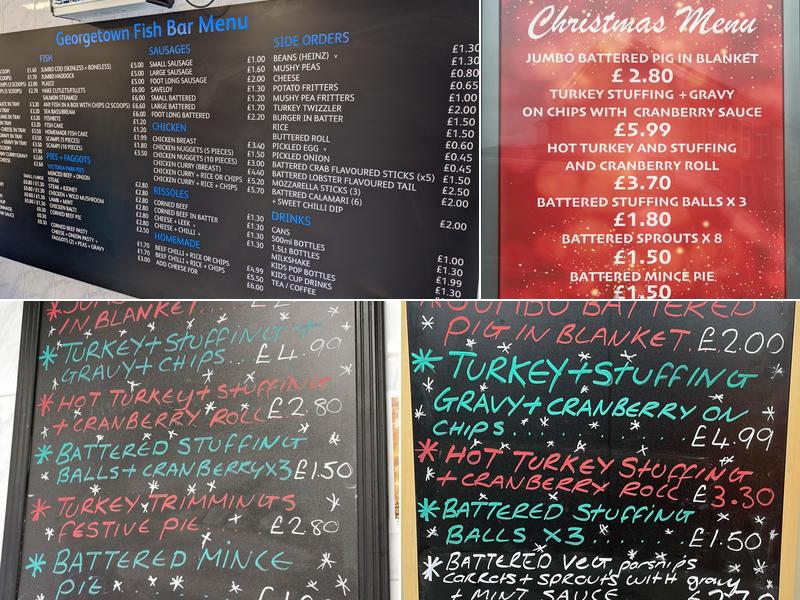 Georgetown Fish Bar Menu
FISH
JUMBO COD (SKINLESS + BONELESS)
JUMBO HADDOCK
PLAICE
HAKE CUTLETS/FILLETS
SALMON STEAMED
ANY FISH IN A BOX WITH CHIPS (2 SCOOPS)
SEA BASS/BREAM
FISHBITE
FISH CAKE
HOMEMADE FISH CAKE
SCAMPI (5 PIECES)
SCAMPI (10 PIECES)
PIES + FAGGOTS
VICTORIA PARK PIES
MINCED BEEF + ONION
STEAK
STEAK + KIDNEY
CHICKEN + WILD MUSHROOM
LAMB + MINT
CHICKEN BALTI
CORNED BEEF PIE
CORNED BEEF PASTY
CHEESE + ONION PASTY
FAGGOTS (2) + PEAS + GRAVY
SAUSAGES
SMALL SAUSAGE £1.00
LARGE SAUSAGE £1.60
FOOT LONG SAUSAGE £2.00
SAVELOY £1.30
SMALL BATTERED £1.20
LARGE BATTERED £1.70
FOOT LONG BATTERED £2.20
CHICKEN
CHICKEN BREAST £3.40
CHICKEN NUGGETS (5 PIECES) £1.50
CHICKEN NUGGETS (10 PIECES) £3.00
CHICKEN CURRY (BREAST) £4.40
CHICKEN CURRY + RICE OR CHIPS £5.20
CHICKEN CURRY + RICE + CHIPS £5.70
RISSOLES
CORNED BEEF £1.30
CORNED BEEF IN BATTER £1.30
CHEESE + LEEK £1.30
CHEESE + CHILLI £1.30
HOMEMADE
BEEF CHILLI + RICE OR CHIPS £4.99
BEEF CHILLI + RICE + CHIPS £5.50
ADD CHEESE FOR £6.00
SIDE ORDERS
BEANS (HEINZ) v £1.30
MUSHY PEAS £1.30
CHEESE £0.80
POTATO FRITTERS £0.65
MUSHY PEA FRITTERS £1.00
TURKEY TWIZZLER £2.00
BURGER IN BATTER £1.50
RICE £1.50
BUTTERED ROLL £0.60
PICKLED EGG v £0.45
PICKLED ONION £0.45
BATTERED CRAB FLAVOURED STICKS (x5) £1.50
BATTERED LOBSTER FLAVOURED TAIL £2.50
MOZZARELLA STICKS (3) £2.00
BATTERED CALAMARI (6)
+ SWEET CHILI DIP £2.00
DRINKS
CANS £1.00
500ml BOTTLES £1.30
1.5Lt BOTTLES £1.99
MILKSHAKE £1.30
KIDS POP BOTTLES
KIDS CUP DRINKS
TEA / COFFEE
Christmas Menu
JUMBO BATTERED PIG IN BLANKET
£ 2.80
TURKEY STUFFING + GRAVY
ON CHIPS WITH CRANBERRY SAUCE
£5.99
HOT TURKEY AND STUFFING
AND CRANBERRY ROLL
£3.70
BATTERED STUFFING BALLS X 3
£1.80
BATTERED SPROUTS X 8
£1.50
BATTERED MINCE PIE
£1.50
IN BLANKET.
TURKEY+ STUFFING +
GRAVY+ CHIPS... £4.99
HOT TURKEY+ STUFFING
+ CRANBERRY ROLL £2.80
BATTERED STUFFING
BALLS+ CRANBERRY X3 £1.50
TURKEY TRIMMINGS
FESTIVE PIE... £2.80
BATTERED MINCE
PIE
JUMBO BATTERED
PIG IN BLANKET. £2.00
TURKEY+ STUFFING
GRAVY+ CRANBERRY ON
CHIPS ........... £4.99
HOT TURKEY STUFFING
+ CRANBERRY ROLL £3.30
BATTERED STUFFING
BALLS X3 ...... £1.50
BATTERED VEG, parsnips
carrots + sprouts with gravy
+ MINT SAUCE